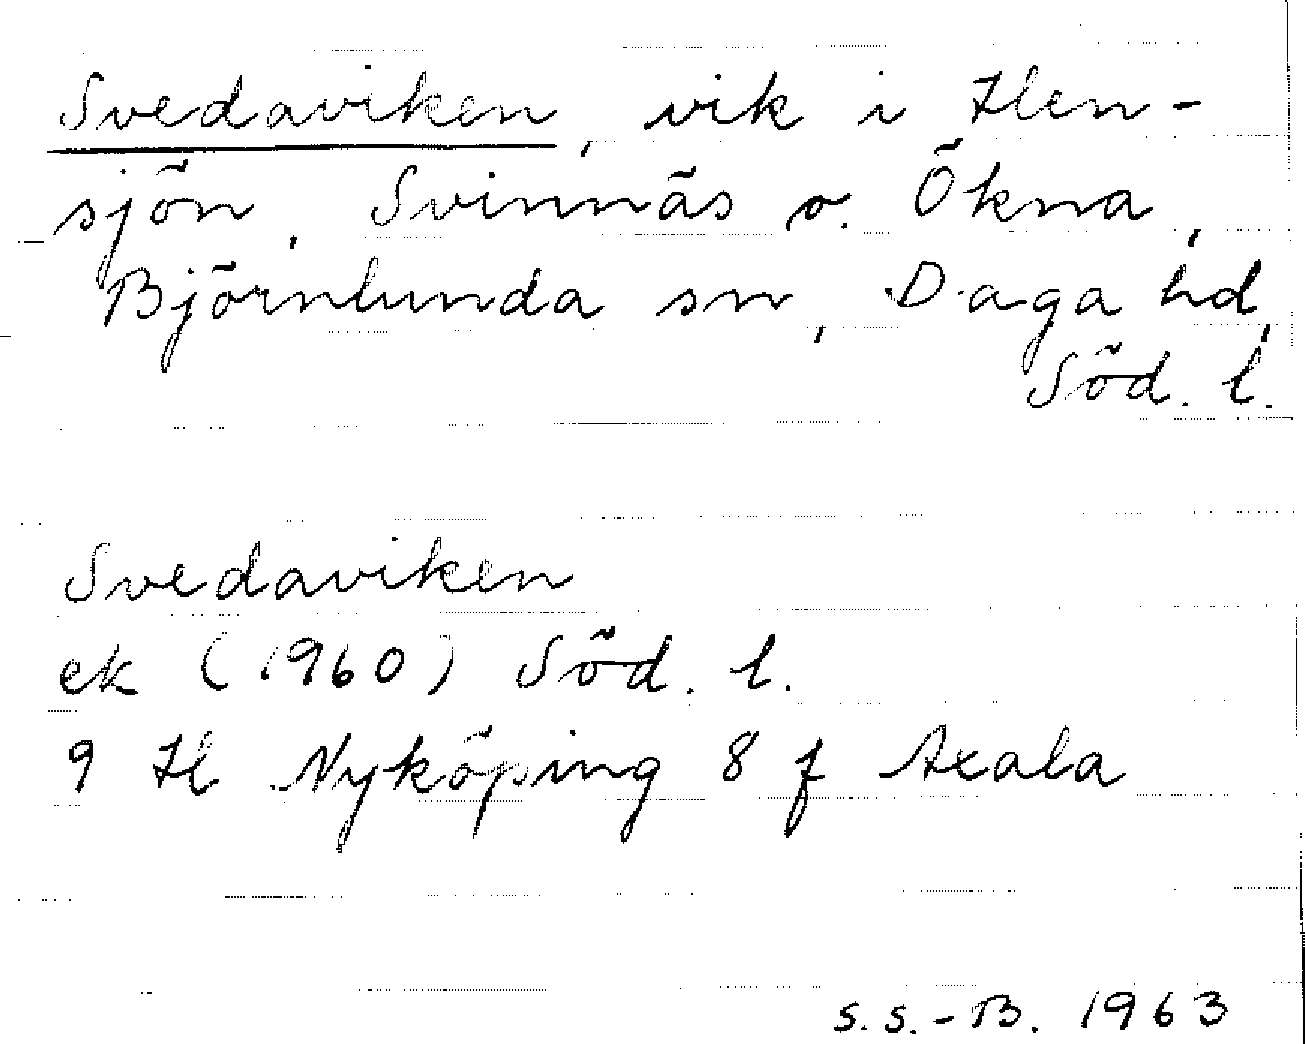 Svedaviken, vik i Hen-
sjön, Svinnäs o. Ökna,
Björnlunda sn, Daga hd,
Söd. l.
Svedaviken
ek (1960) Söd. l.
9 H Nyköping 8 f Axala
S.S.-B. 1963